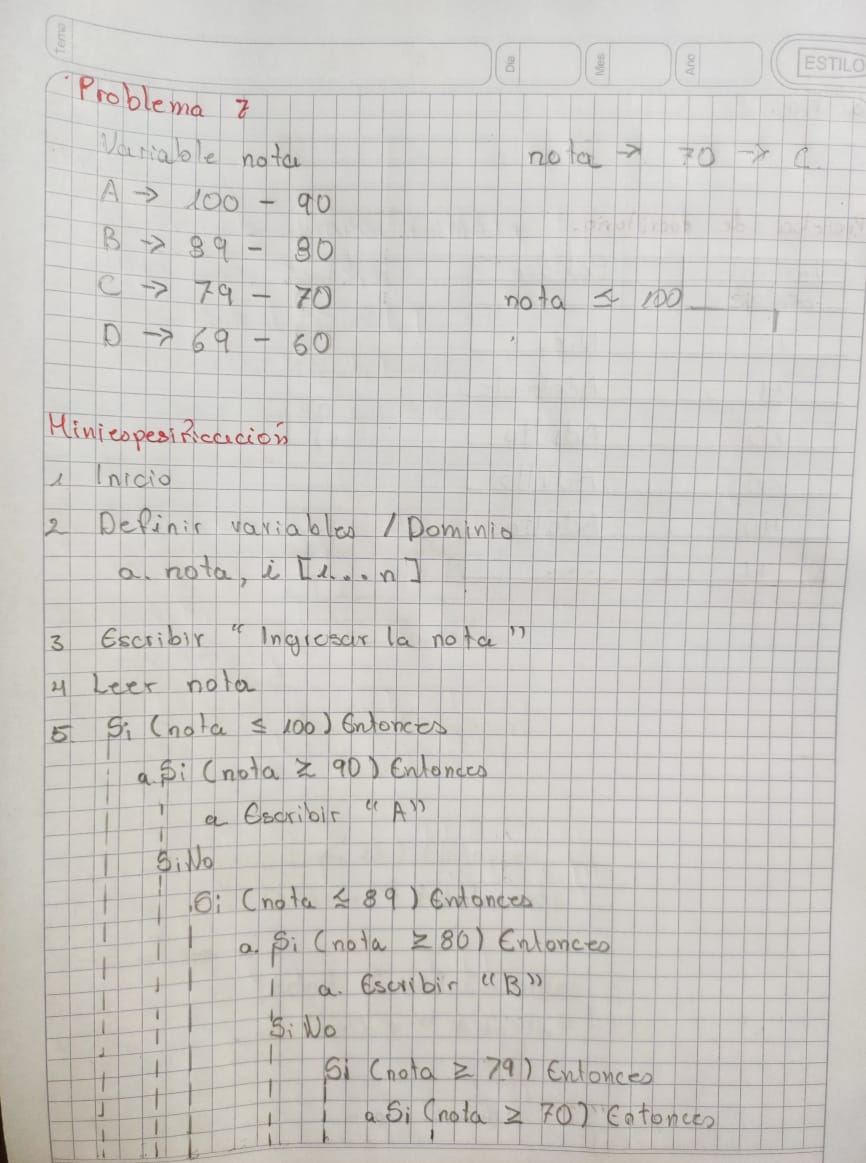 Tema
Dia
Mes
Ano
ESTILO
Problema 7
Variable nota
nota → 70 → C
A → 100 - 90
B → 89 - 80
C → 79 - 70
nota ≤ 100
D → 69 - 60
Miniespesificación
1 Inicio
2 Definir variables / Dominio
a. nota, i [1...n]
3 Escribir "Ingresar la nota"
4 Leer nota
5. Si (nota ≤ 100) Entonces
a. Si (nota ≥ 90) Entonces
a Escribir "A"
SiNo
Si (nota ≤ 89) Entonces
a. Si (nota ≥ 80) Entonces
a. Escribir "B"
SiNo
Si (nota ≥ 79) Entonces
a Si (nota ≥ 70) Entonces